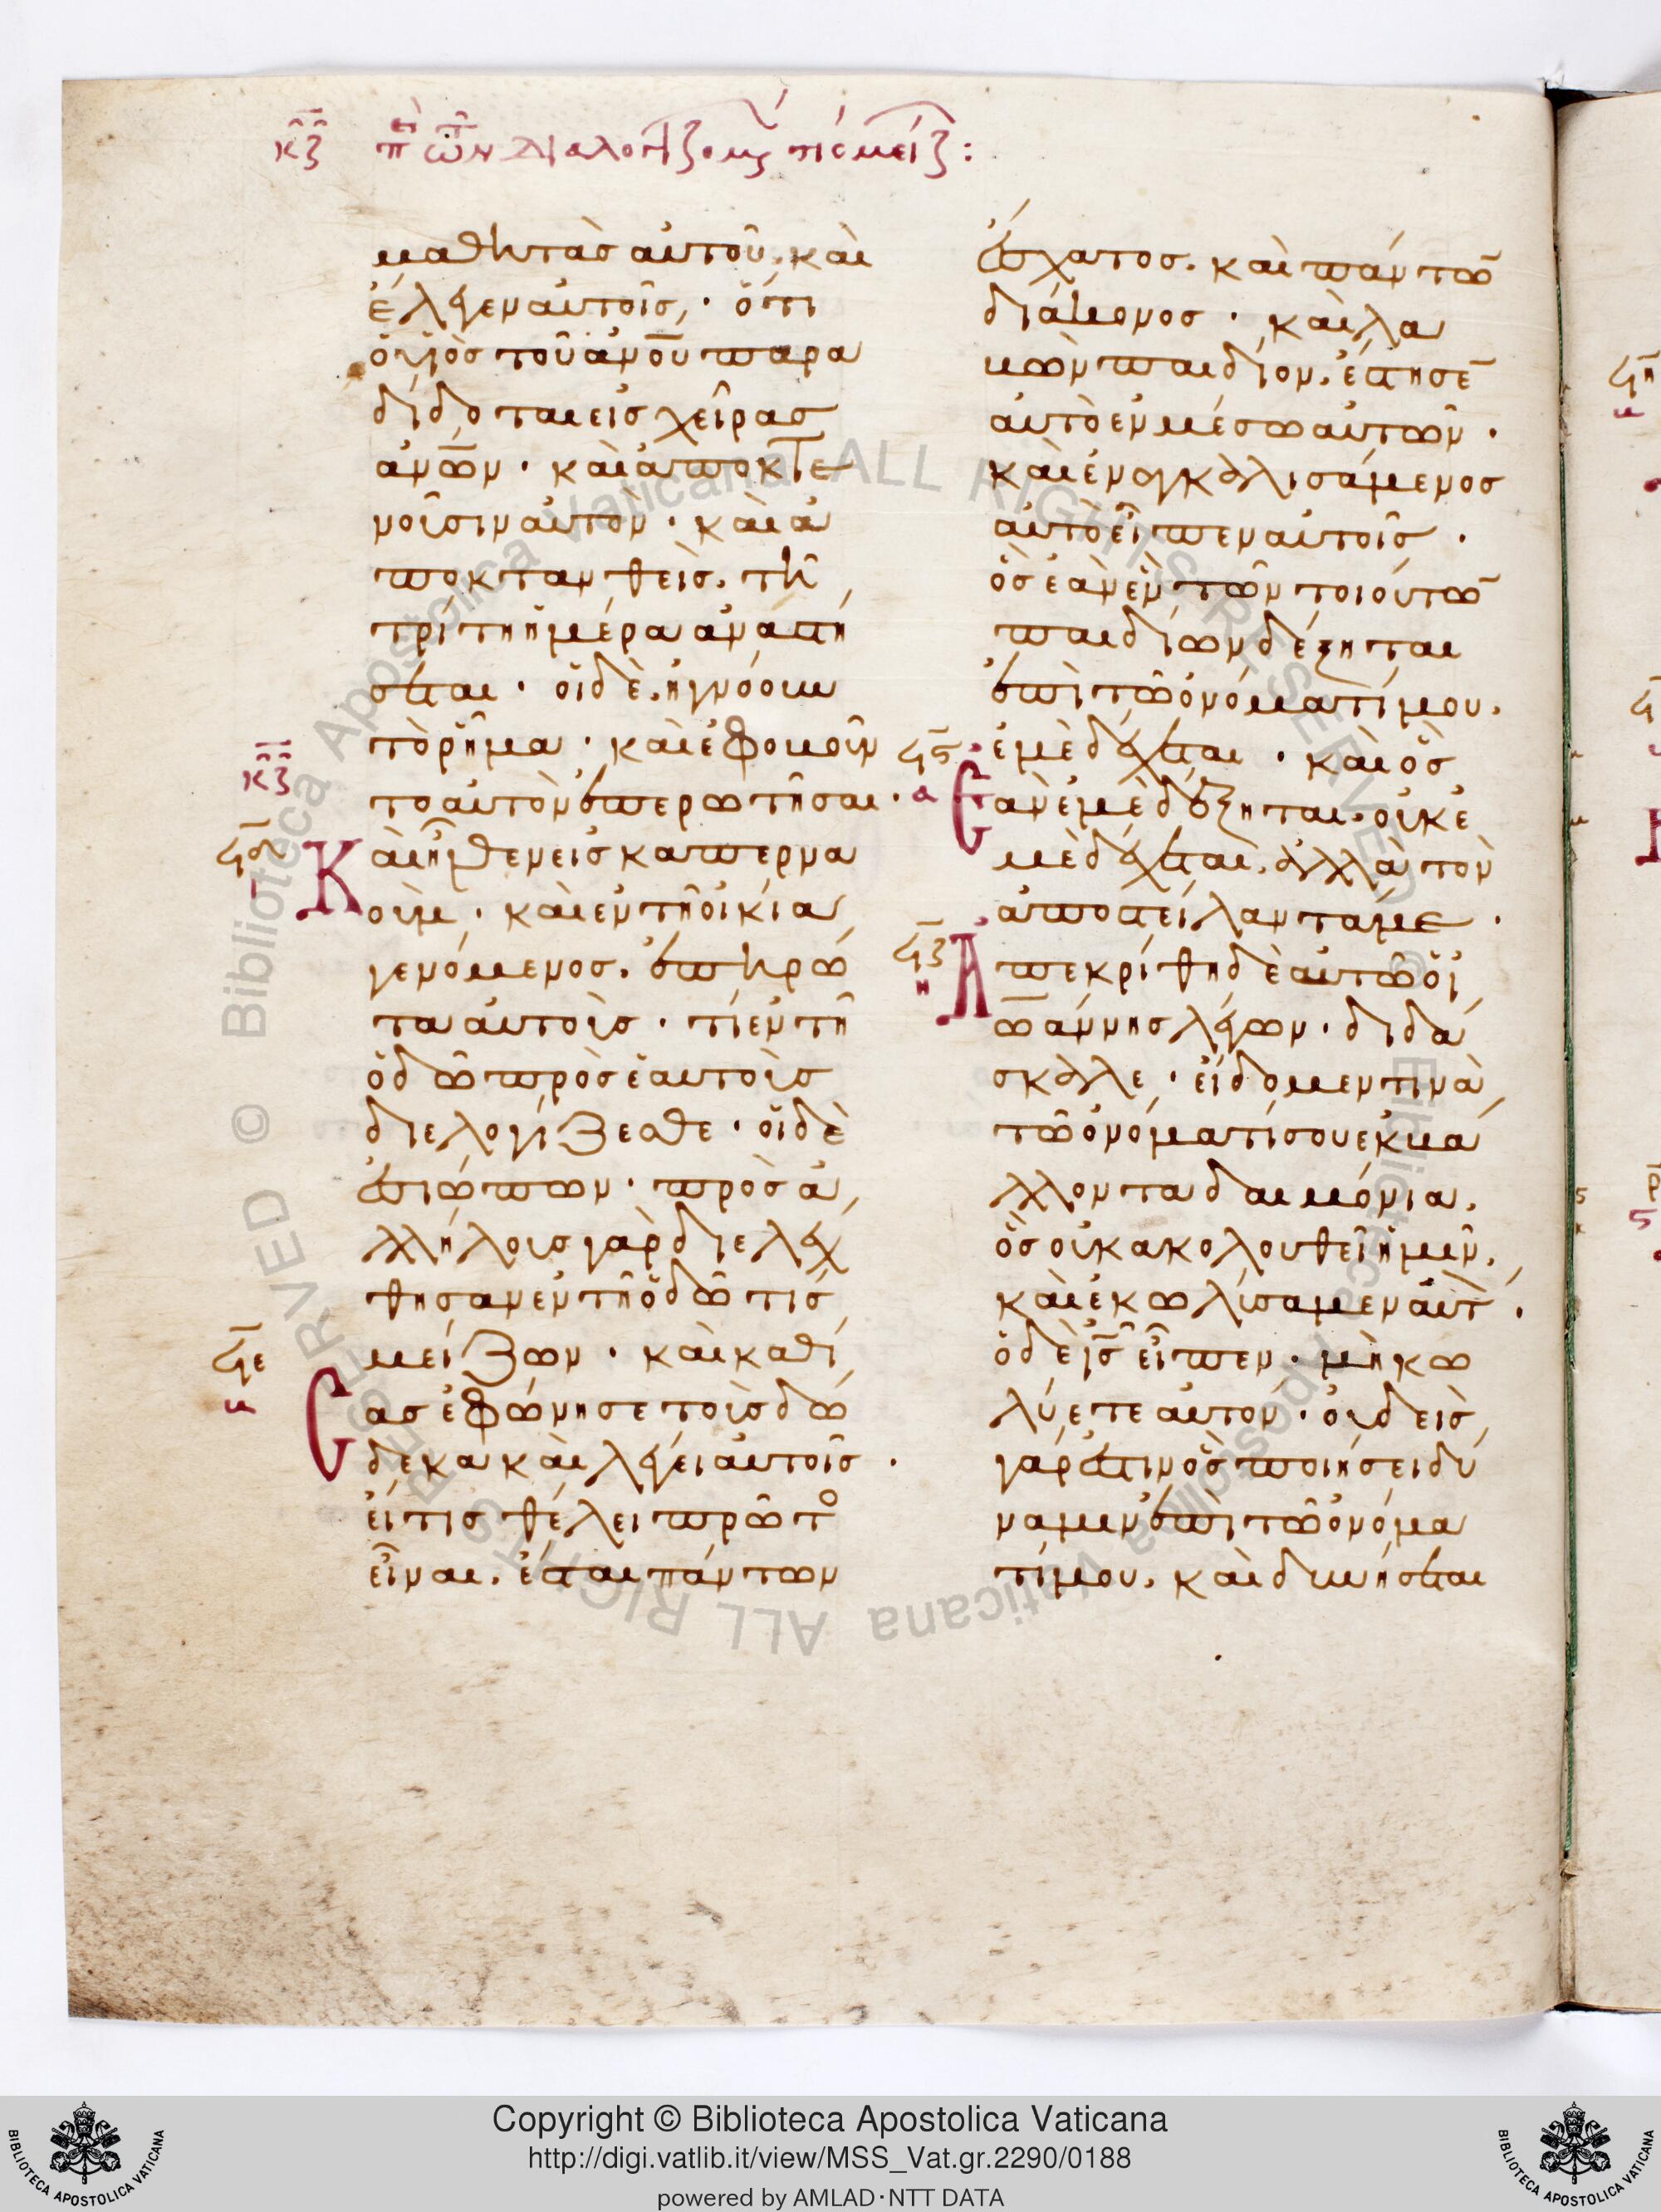 κζ περὶ τῶν διαλογιζομένων τίς μείζων:
μαθητὰς αὐτοῦ. καὶ
ἔλεγεν αὐτοῖς, · ὅτι
ὁ υἱὸς τοῦ ἀν̅ο̅υ̅ παρα
δίδοται εἰς χεῖρας
ἀν̅ω̅ν̅ · καὶ ἀποκτε
νοῦσιν αὐτὸν · καὶ ἀ
ποκτανθεὶς. τῆ
τρίτη ἡμέρα ἀναστή
σεται · οἱ δὲ. ἠγνόουν
τὸ ῥῆμα · καὶ ἐφοβοῦν
κζ
το αὐτὸν ἐπερωτῆσαι ·
ϟδ
Καὶ ἦλθεν εἰς καπερνα
ούμ · καὶ ἐν τῆ οἰκία
γενόμενος. ἐπηρώ
τα αὐτοὺς · τί ἐν τῆ
ὁδῶ πρὸς ἑαυτοὺς
διελογίζεσθε · οἱ δὲ
ἐσιώπων · πρὸς ἀ
λλήλους γὰρ διελέχ
θησαν ἐν τῆ ὁδῶ τίς
ϟε
μείζων · καὶ καθί
Cας ἐφώνησε τοὺς δώ
δεκα καὶ λέγει αὐτοῖς ·
εἴ τις θέλει πρῶτο
εἶναι. ἔσται πάντων
ἔσχατος. καὶ πάντω̅
διάκονος · καὶ λα
βὼν παιδίον. ἔστησε̅
αὐτὸ ἐν μέσω αὐτῶν ·
καὶ ἐναγκαλισάμενος
αὐτὸ εἶπεν αὐτοῖς ·
ὃς ἐὰν ἓν τῶν τοιούτω̅
παιδίων δέξηται
ἐπὶ τῶ ὀνόματί μου.
ϟς
ἐμὲ δέχεται · καὶ ὃς
α
Ἐὰν ἐμὲ δέξηται. οὐκ ἐ
μὲ δέχεται. ἀλλὰ τὸν
ἀποστείλαντά με ·
ϟζ
η
Ἀπεκρίθη δὲ αὐτῶ ὁ ἰ
ωάννης λέγων · διδά
σκαλε · εἴδομεν τινὰ
τῶ ὀνόματί σου ἐκβά
λλοντα δαιμόνια.
ὃς οὐκ ἀκολουθεῖ ἡμῖν.
καὶ ἐκωλύσαμεν αὐτ ·
ὁ δὲ ι̅ς̅ εἶπεν · μὴ κω
λύετε αὐτόν · οὐδεὶς
γάρ ἐστιν ὃς ποιήσει δύ
ναμιν ἐπὶ τῶ ὀνόμα
τί μου. καὶ δυνήσεται
Copyright © Biblioteca Apostolica Vaticana
http://digi.vatlib.it/view/MSS_Vat.gr.2290/0188
powered by AMLAD·NTT DATA
BIBLIOTECA APOSTOLICA VATICANA
BIBLIOTECA APOSTOLICA VATICANA